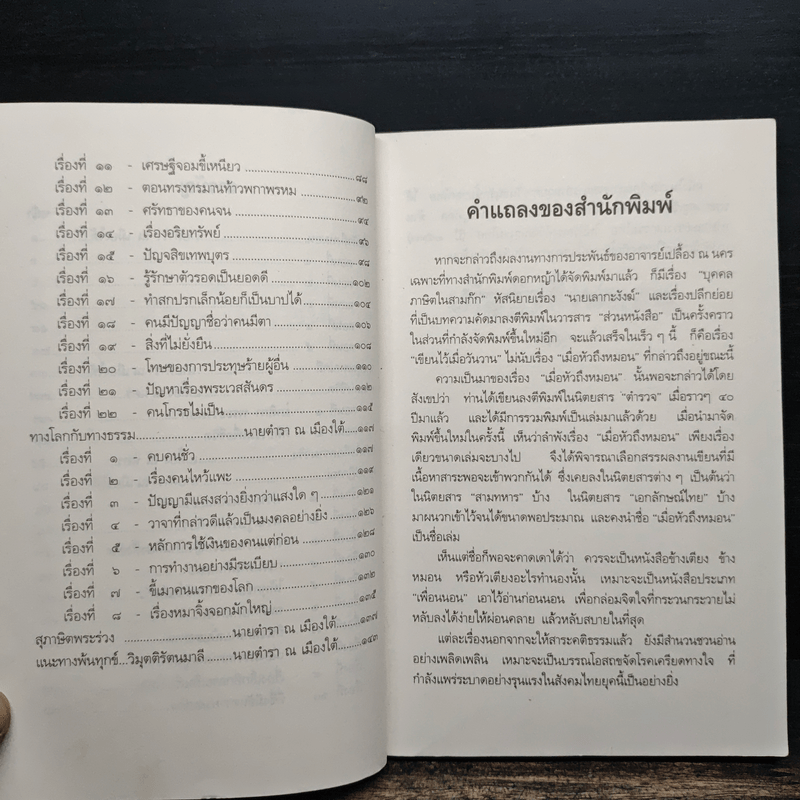 เรื่องที่ ๑๑ - เศรษฐีจอมขี้เหนียว ........ ๘๘
เรื่องที่ ๑๒ - ตอนทรงทรมานท้าวพกาพรหม ........ ๙๒
เรื่องที่ ๑๓ - ศรัทธาของคนจน ........ ๙๔
เรื่องที่ ๑๔ - เรื่องอริยทรัพย์ ........ ๙๖
เรื่องที่ ๑๕ - ปัญจสิขเทพบุตร ........ ๙๘
เรื่องที่ ๑๖ - รู้รักษาตัวรอดเป็นยอดดี ........ ๑๐๒
เรื่องที่ ๑๗ - ทำสกปรกเล็กน้อยก็เป็นบาปได้ ........ ๑๐๔
เรื่องที่ ๑๘ - คนมีปัญญาชื่อว่าคนมีตา ........ ๑๐๖
เรื่องที่ ๑๙ - สิ่งที่ไม่ยั่งยืน ........ ๑๐๘
เรื่องที่ ๒๐ - โทษของการประทุษร้ายผู้อื่น ........ ๑๑๐
เรื่องที่ ๒๑ - ปัญหาเรื่องพระเวสสันดร ........ ๑๑๒
เรื่องที่ ๒๒ - คนโกรธไม่เป็น ........ ๑๑๕
ทางโลกกับทางธรรม ........ นายตำรา ณ เมืองใต้ ........ ๑๑๗
เรื่องที่ ๑ - คบคนชั่ว ........ ๑๑๗
เรื่องที่ ๒ - เรื่องคนไหว้แพะ ........ ๑๑๙
เรื่องที่ ๓ - ปัญญามีแสงสว่างยิ่งกว่าแสงใด ๆ ........ ๑๒๑
เรื่องที่ ๔ - วาจาที่กล่าวดีแล้วเป็นมงคลอย่างยิ่ง ........ ๑๒๖
เรื่องที่ ๕ - หลักการใช้เงินของคนแต่ก่อน ........ ๑๒๘
เรื่องที่ ๖ - การทำงานอย่างมีระเบียบ ........ ๑๓๐
เรื่องที่ ๗ - ขี้เมาคนแรกของโลก ........ ๑๓๒
เรื่องที่ ๘ - เรื่องหมาจิ้งจอกมักใหญ่ ........ ๑๓๕
สุภาษิตพระร่วง ........ นายตำรา ณ เมืองใต้ ........ ๑๓๗
แนะทางพ้นทุกข์...วิมุตติรัตนมาลี ........ นายตำรา ณ เมืองใต้ ........ ๑๔๓
คำแถลงของสำนักพิมพ์
หากจะกล่าวถึงผลงานทางการประพันธ์ของอาจารย์เปลื้อง ณ นคร
เฉพาะที่ทางสำนักพิมพ์ดอกหญ้าได้จัดพิมพ์มาแล้ว ก็มีเรื่อง "บุคคล
ภาษิตในสามก๊ก" หัสนิยายเรื่อง "นายเลากะงังฝ์" และเรื่องปลีกย่อย
ที่เป็นบทความคัดมาลงตีพิมพ์ในวารสาร "ส่วนหนังสือ" เป็นครั้งคราว
ในส่วนที่กำลังจัดพิมพ์ขึ้นใหม่อีก จะแล้วเสร็จในเร็ว ๆ นี้ ก็คือเรื่อง
"เขียนไว้เมื่อวันวาน" ไม่นับเรื่อง "เมื่อหัวถึงหมอน" ที่กล่าวถึงอยู่ขณะนี้
ความเป็นมาของเรื่อง "เมื่อหัวถึงหมอน" นั้นพอจะกล่าวได้โดย
สังเขปว่า ท่านได้เขียนลงตีพิมพ์ในนิตยสาร "ตำรวจ" เมื่อราวๆ ๔๐
ปีมาแล้ว และได้มีการรวมพิมพ์เป็นเล่มมาแล้วด้วย เมื่อนำมาจัด
พิมพ์ขึ้นใหม่ในครั้งนี้ เห็นว่าลำพังเรื่อง "เมื่อหัวถึงหมอน" เพียงเรื่อง
เดียวขนาดเล่มจะบางไป จึงได้พิจารณาเลือกสรรผลงานเขียนที่มี
เนื้อหาสาระพอจะเข้าพวกกันได้ ซึ่งเคยลงในนิตยสารต่าง ๆ เป็นต้นว่า
ในนิตยสาร "สามทหาร" บ้าง ในนิตยสาร "เอกลักษณ์ไทย" บ้าง
มาผนวกเข้าไว้จนได้ขนาดพอประมาณ และคงนำชื่อ "เมื่อหัวถึงหมอน"
เป็นชื่อเล่ม
เห็นแต่ชื่อก็พอจะคาดเดาได้ว่า ควรจะเป็นหนังสือข้างเตียง ข้าง
หมอน หรือหัวเตียงอะไรทำนองนั้น เหมาะจะเป็นหนังสือประเภท
"เพื่อนนอน" เอาไว้อ่านก่อนนอน เพื่อกล่อมจิตใจที่กระวนกระวายไม่
หลับลงได้ง่ายให้ผ่อนคลาย แล้วหลับสบายในที่สุด
แต่ละเรื่องนอกจากจะให้สาระคติธรรมแล้ว ยังมีสำนวนชวนอ่าน
อย่างเพลิดเพลิน เหมาะจะเป็นบรรณโอสถขจัดโรคเครียดทางใจ ที่
กำลังแพร่ระบาดอย่างรุนแรงในสังคมไทยยุคนี้เป็นอย่างยิ่ง